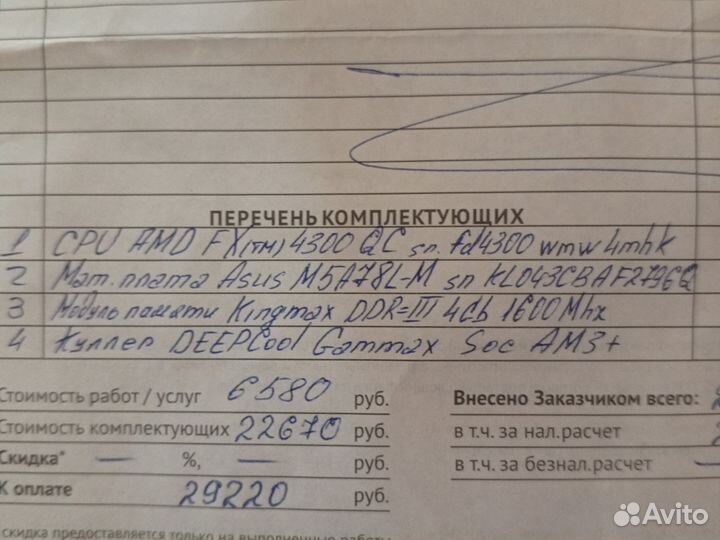 ПЕРЕЧЕНЬ КОМПЛЕКТУЮЩИХ
1 CPU AMD FX(TM) 4300 QC sn. fd4300wmw4mhk
2 Мат. плата Asus M5A78L-M sn KL043CBAF2796Q
3 Модуль памяти Kingmax DDR-III 4Gb 1600Mhx
4 Куллер DEEPCool Gammax Soc AM3+
Стоимость работ / услуг 6580 руб. Внесено Заказчиком всего:
Стоимость комплектующих 22670 руб. в т.ч. за нал.расчет
Скидка* — %, — руб. в т.ч. за безнал.расчет —
К оплате 29220 руб.
скидка предоставляется только на выполненные работы
Avito